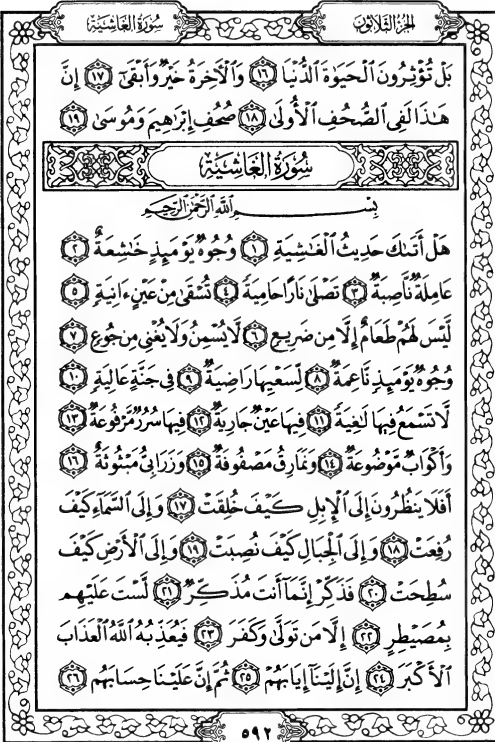 سُورَةُ الغَاشِيَةِ الجُزْءُ الثَّلَاثُونَ
بَلْ تُؤْثِرُونَ الْحَيَوٰةَ الدُّنْيَا ١٦ وَالْآخِرَةُ خَيْرٌ وَأَبْقَىٰ ١٧ إِنَّ
هَـٰذَا لَفِى الصُّحُفِ الْأُولَىٰ ١٨ صُحُفِ إِبْرَٰهِيمَ وَمُوسَىٰ ١٩
سُورَةُ الْغَاشِيَةِ
بِسْمِ اللَّهِ الرَّحْمَٰنِ الرَّحِيمِ
هَلْ أَتَىٰكَ حَدِيثُ الْغَـٰشِيَةِ ١ وُجُوهٌ يَوْمَئِذٍ خَـٰشِعَةٌ ٢
عَامِلَةٌ نَّاصِبَةٌ ٣ تَصْلَىٰ نَارًا حَامِيَةً ٤ تُسْقَىٰ مِنْ عَيْنٍ ءَانِيَةٍ ٥
لَّيْسَ لَهُمْ طَعَامٌ إِلَّا مِن ضَرِيعٍ ٦ لَّا يُسْمِنُ وَلَا يُغْنِى مِن جُوعٍ ٧
وُجُوهٌ يَوْمَئِذٍ نَّاعِمَةٌ ٨ لِّسَعْيِهَا رَاضِيَةٌ ٩ فِى جَنَّةٍ عَالِيَةٍ ١٠
لَّا تَسْمَعُ فِيهَا لَـٰغِيَةً ١١ فِيهَا عَيْنٌ جَارِيَةٌ ١٢ فِيهَا سُرُرٌ مَّرْفُوعَةٌ ١٣
وَأَكْوَابٌ مَّوْضُوعَةٌ ١٤ وَنَمَارِقُ مَصْفُوفَةٌ ١٥ وَزَرَابِىُّ مَبْثُوثَةٌ ١٦
أَفَلَا يَنظُرُونَ إِلَى الْإِبِلِ كَيْفَ خُلِقَتْ ١٧ وَإِلَى السَّمَآءِ كَيْفَ
رُفِعَتْ ١٨ وَإِلَى الْجِبَالِ كَيْفَ نُصِبَتْ ١٩ وَإِلَى الْأَرْضِ كَيْفَ
سُطِحَتْ ٢٠ فَذَكِّرْ إِنَّمَآ أَنتَ مُذَكِّرٌ ٢١ لَّسْتَ عَلَيْهِم
بِمُصَيْطِرٍ ٢٢ إِلَّا مَن تَوَلَّىٰ وَكَفَرَ ٢٣ فَيُعَذِّبُهُ اللَّهُ الْعَذَابَ
الْأَكْبَرَ ٢٤ إِنَّ إِلَيْنَآ إِيَابَهُمْ ٢٥ ثُمَّ إِنَّ عَلَيْنَا حِسَابَهُم ٢٦
٥٩٢